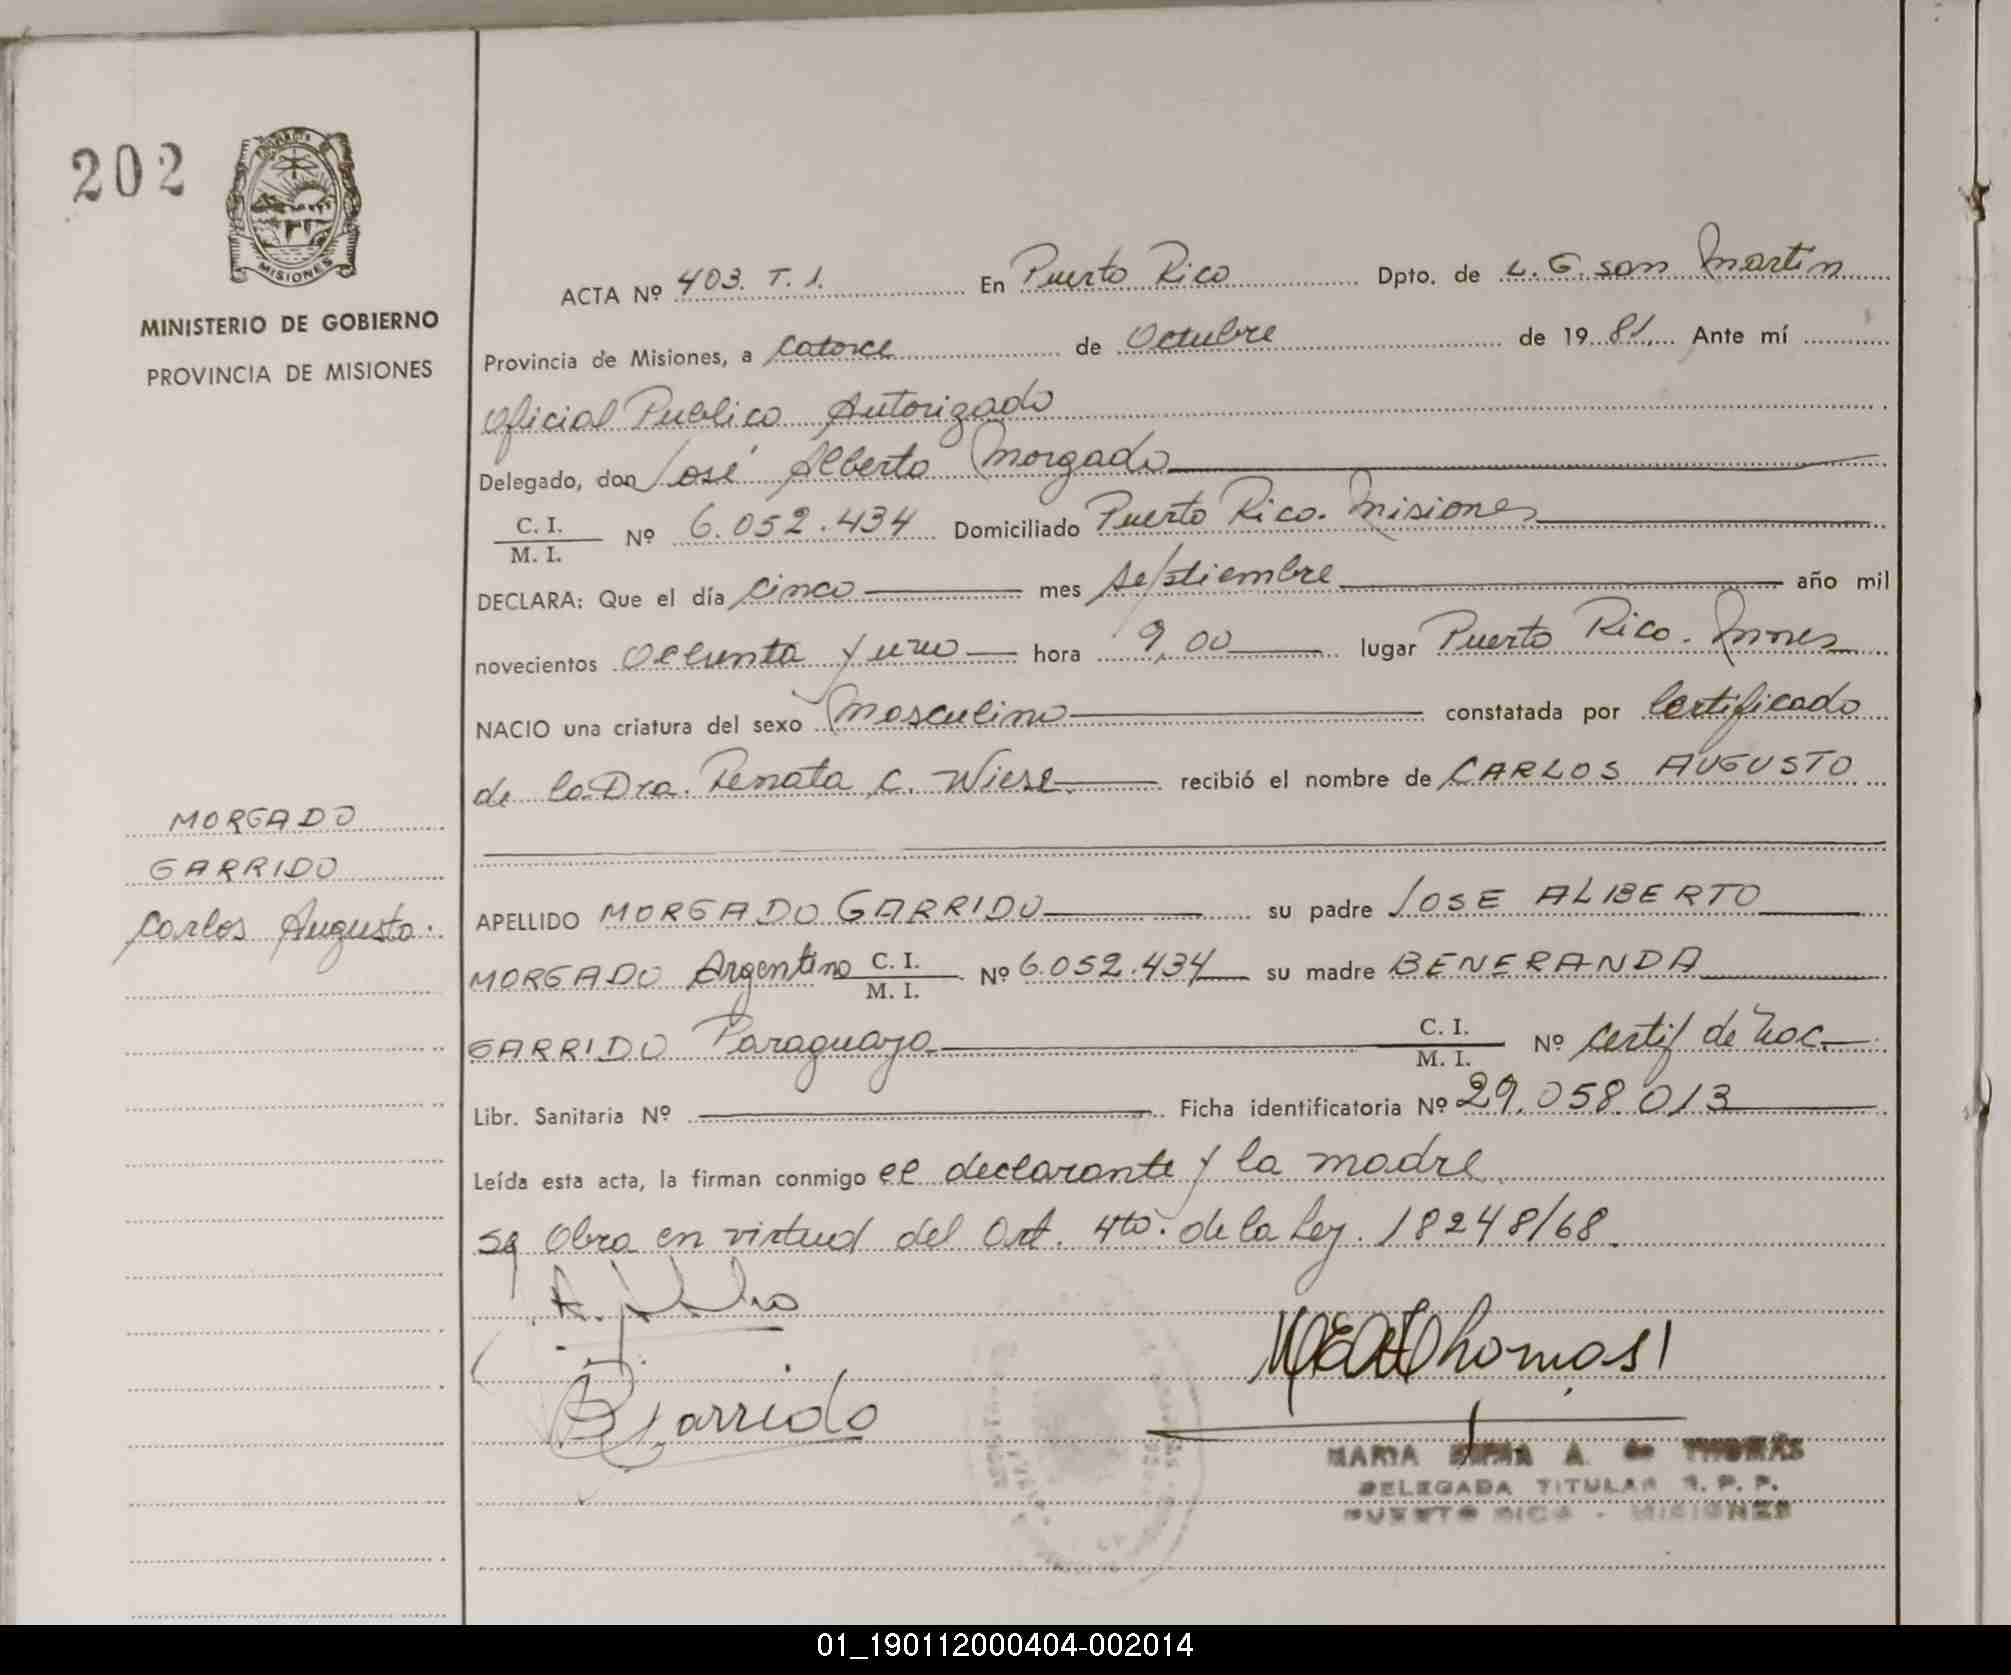 202
MISIONES
MINISTERIO DE GOBIERNO
PROVINCIA DE MISIONES
ACTA Nº 403. T. 1. En Puerto Rico Dpto. de L. G. san Martín
Provincia de Misiones, a catorce de Octubre de 1981. Ante mí
Oficial Publico Autorizado
Delegado, don José Alberto Morgado
C. I.
M. I.
Nº 6.052.434 Domiciliado Puerto Rico. Misiones
DECLARA: Que el día cinco mes septiembre año mil
novecientos Ochenta y uno hora 9,00 lugar Puerto Rico. Mnes
NACIO una criatura del sexo Masculino constatada por Certificado
de la Dra. Renata C. Wiese recibió el nombre de CARLOS AUGUSTO
MORGADO
GARRIDO
Carlos Augusto.
APELLIDO MORGADO GARRIDO su padre JOSE ALBERTO
MORGADO Argentino C. I. Nº 6.052.434 su madre BENERANDA
M. I.
GARRIDO Paraguaya C. I. Nº certif de Nac.
M. I.
Libr. Sanitaria Nº Ficha identificatoria Nº 29.058.013
Leída esta acta, la firman conmigo el declarante y la madre
Se Obra en virtud del Art. 4to. de la Ley. 18248/68.
B Garrido
Thomas
MARIA A. de THOMAS
DELEGADA TITULAR R. P. P.
PUERTO RICO - MISIONES
01_190112000404-002014